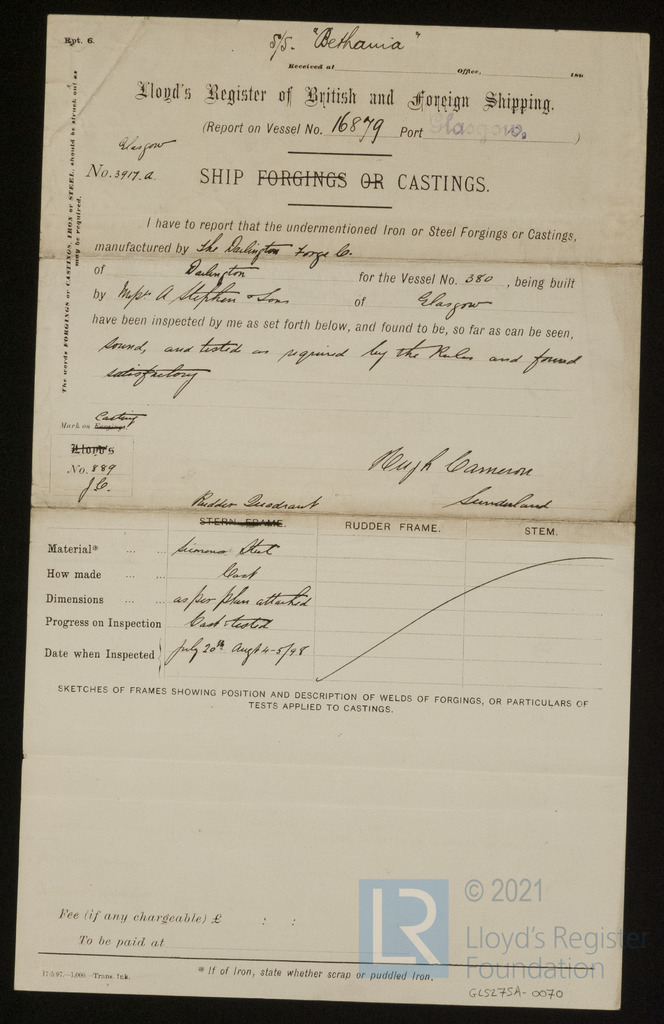 Rpt. 6.
S/S. "Bethania"
Received at Office, 189
Lloyd's Register of British and Foreign Shipping.
(Report on Vessel No. 16879 Port Glasgow.)
Glasgow
No. 3917.a.
SHIP FORGINGS OR CASTINGS.
The words FORGINGS or CASTINGS, IRON or STEEL, should be struck out as
may be required.
I have to report that the undermentioned Iron or Steel Forgings or Castings,
manufactured by The Darlington Forge Co.
of Darlington for the Vessel No. 380, being built
by Messrs A Stephen & Sons of Glasgow
have been inspected by me as set forth below, and found to be, so far as can be seen,
sound, and tested as required by the Rules and found
satisfactory
Casting
Mark on Forging.
Lloyd's
No. 889
J.C.
Hugh Cameron
Sunderland
Rudder Quadrant
STERN FRAME. RUDDER FRAME. STEM.
Material* Siemens Steel
How made Cast
Dimensions as per plan attached
Progress on Inspection Cast & tested
Date when Inspected July 20th Augt 4-5/98
SKETCHES OF FRAMES SHOWING POSITION AND DESCRIPTION OF WELDS OF FORGINGS, OR PARTICULARS OF
TESTS APPLIED TO CASTINGS.
Fee (if any chargeable) £ : :
To be paid at
17.5.97.—1,000.—Trans. Ink.
* If of Iron, state whether scrap or puddled Iron.
LR
© 2021
Lloyd's Register
Foundation
GLS275A-0070